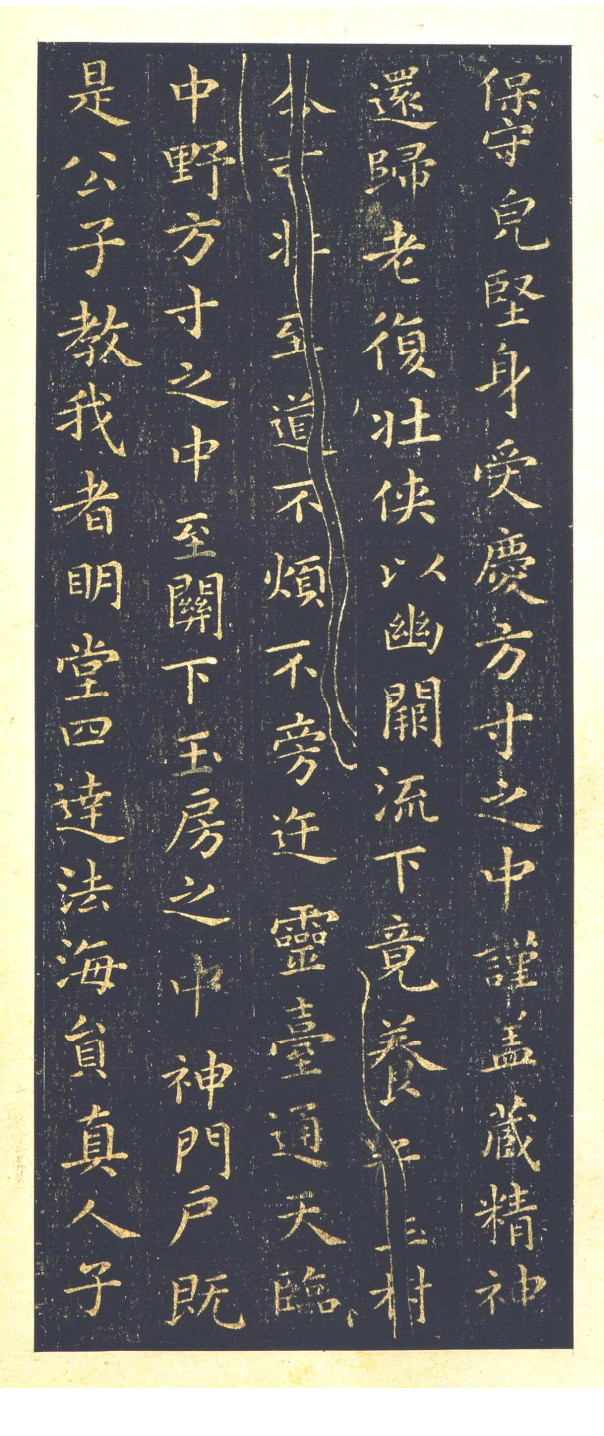 保守皃堅身受慶方寸之中謹盖藏精神
還歸老復壯俠以幽闕流下竟養子玉樹
不可壯至道不煩不旁迕靈臺通天臨
中野方寸之中至關下玉房之中神門戶既
是公子教我者明堂四達法海貟真人子